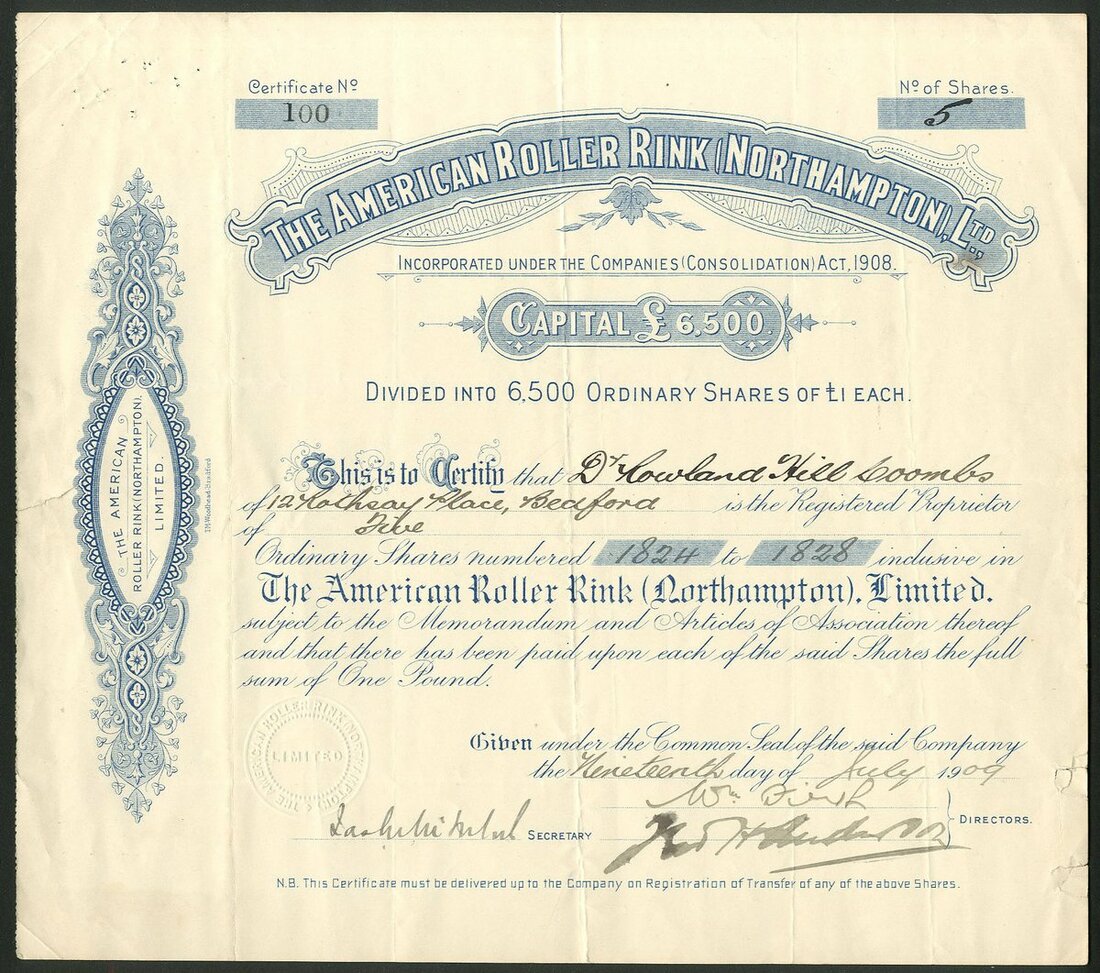 Certificate No
100
No of Shares.
5
THE AMERICAN ROLLER RINK (NORTHAMPTON), LTD
INCORPORATED UNDER THE COMPANIES (CONSOLIDATION) ACT, 1908.
CAPITAL £ 6,500.
DIVIDED INTO 6,500 ORDINARY SHARES OF £1 EACH.
This is to Certify that Dr Rowland Hill Coombs
of 12 Rothsay Place, Bedford is the Registered Proprietor
of Five
Ordinary Shares numbered 1824 to 1828 inclusive in
The American Roller Rink (Northampton), Limited.
subject to the Memorandum and Articles of Association thereof
and that there has been paid upon each of the said Shares the full
sum of One Pound.
Given under the Common Seal of the said Company
the Nineteenth day of July 1909
Wm
SECRETARY
DIRECTORS.
N.B. This Certificate must be delivered up to the Company on Registration of Transfer of any of the above Shares.
THE AMERICAN
ROLLER RINK (NORTHAMPTON),
LIMITED.
THE AMERICAN ROLLER RINK (NORTHAMPTON)
LIMITED